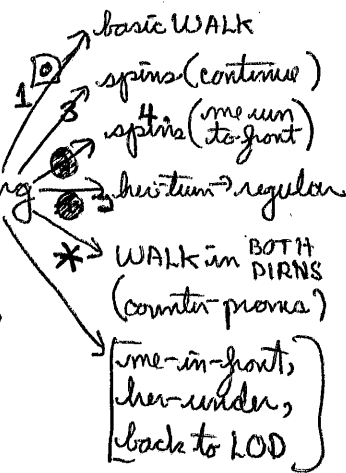 basic WALK
1
spins (continue)
3
4
spins (me run
to-front)
rg her-turn → regular
* WALK in BOTH
DIRNS
(counter-proms)
[me-in-front,
her-under,
back to LOD]